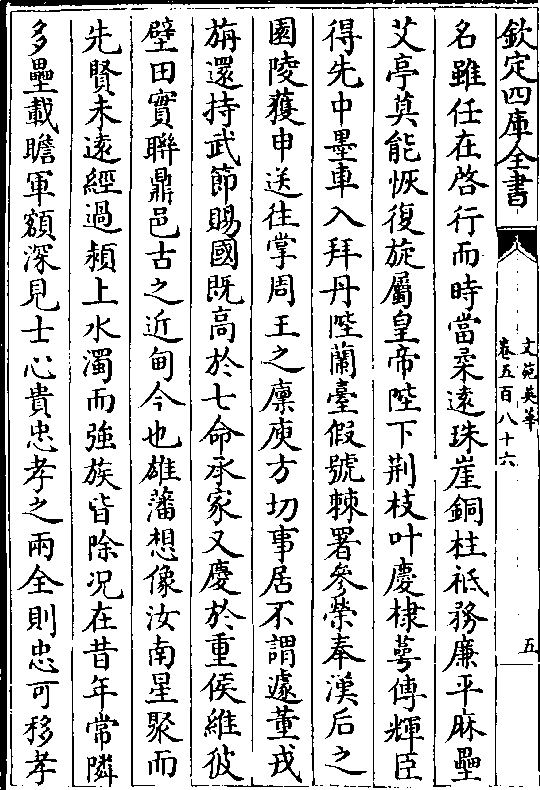 欽定四庫全書
文苑英華
卷五百八十六
五
名雖任在啓行而時當柔遠珠崖銅柱祗務廉平麻壘
艾亭莫能恢復旋屬皇帝陛下荆枝叶慶棣蕚傳輝臣
得先中墨車入拜丹陛蘭臺假號棘署參榮奉漢后之
園陵獲申送往掌周王之廩庾方切事居不謂遽董戎
旃還持武節賜國既高於七命承家又慶於重侯維彼
壁田實聯鼎邑古之近甸今也雄藩想像汝南星聚而
先賢未遠經過潁上水濁而強族皆除况在昔年常隣
多壘載瞻軍額深見士心貴忠孝之兩全則忠可移孝